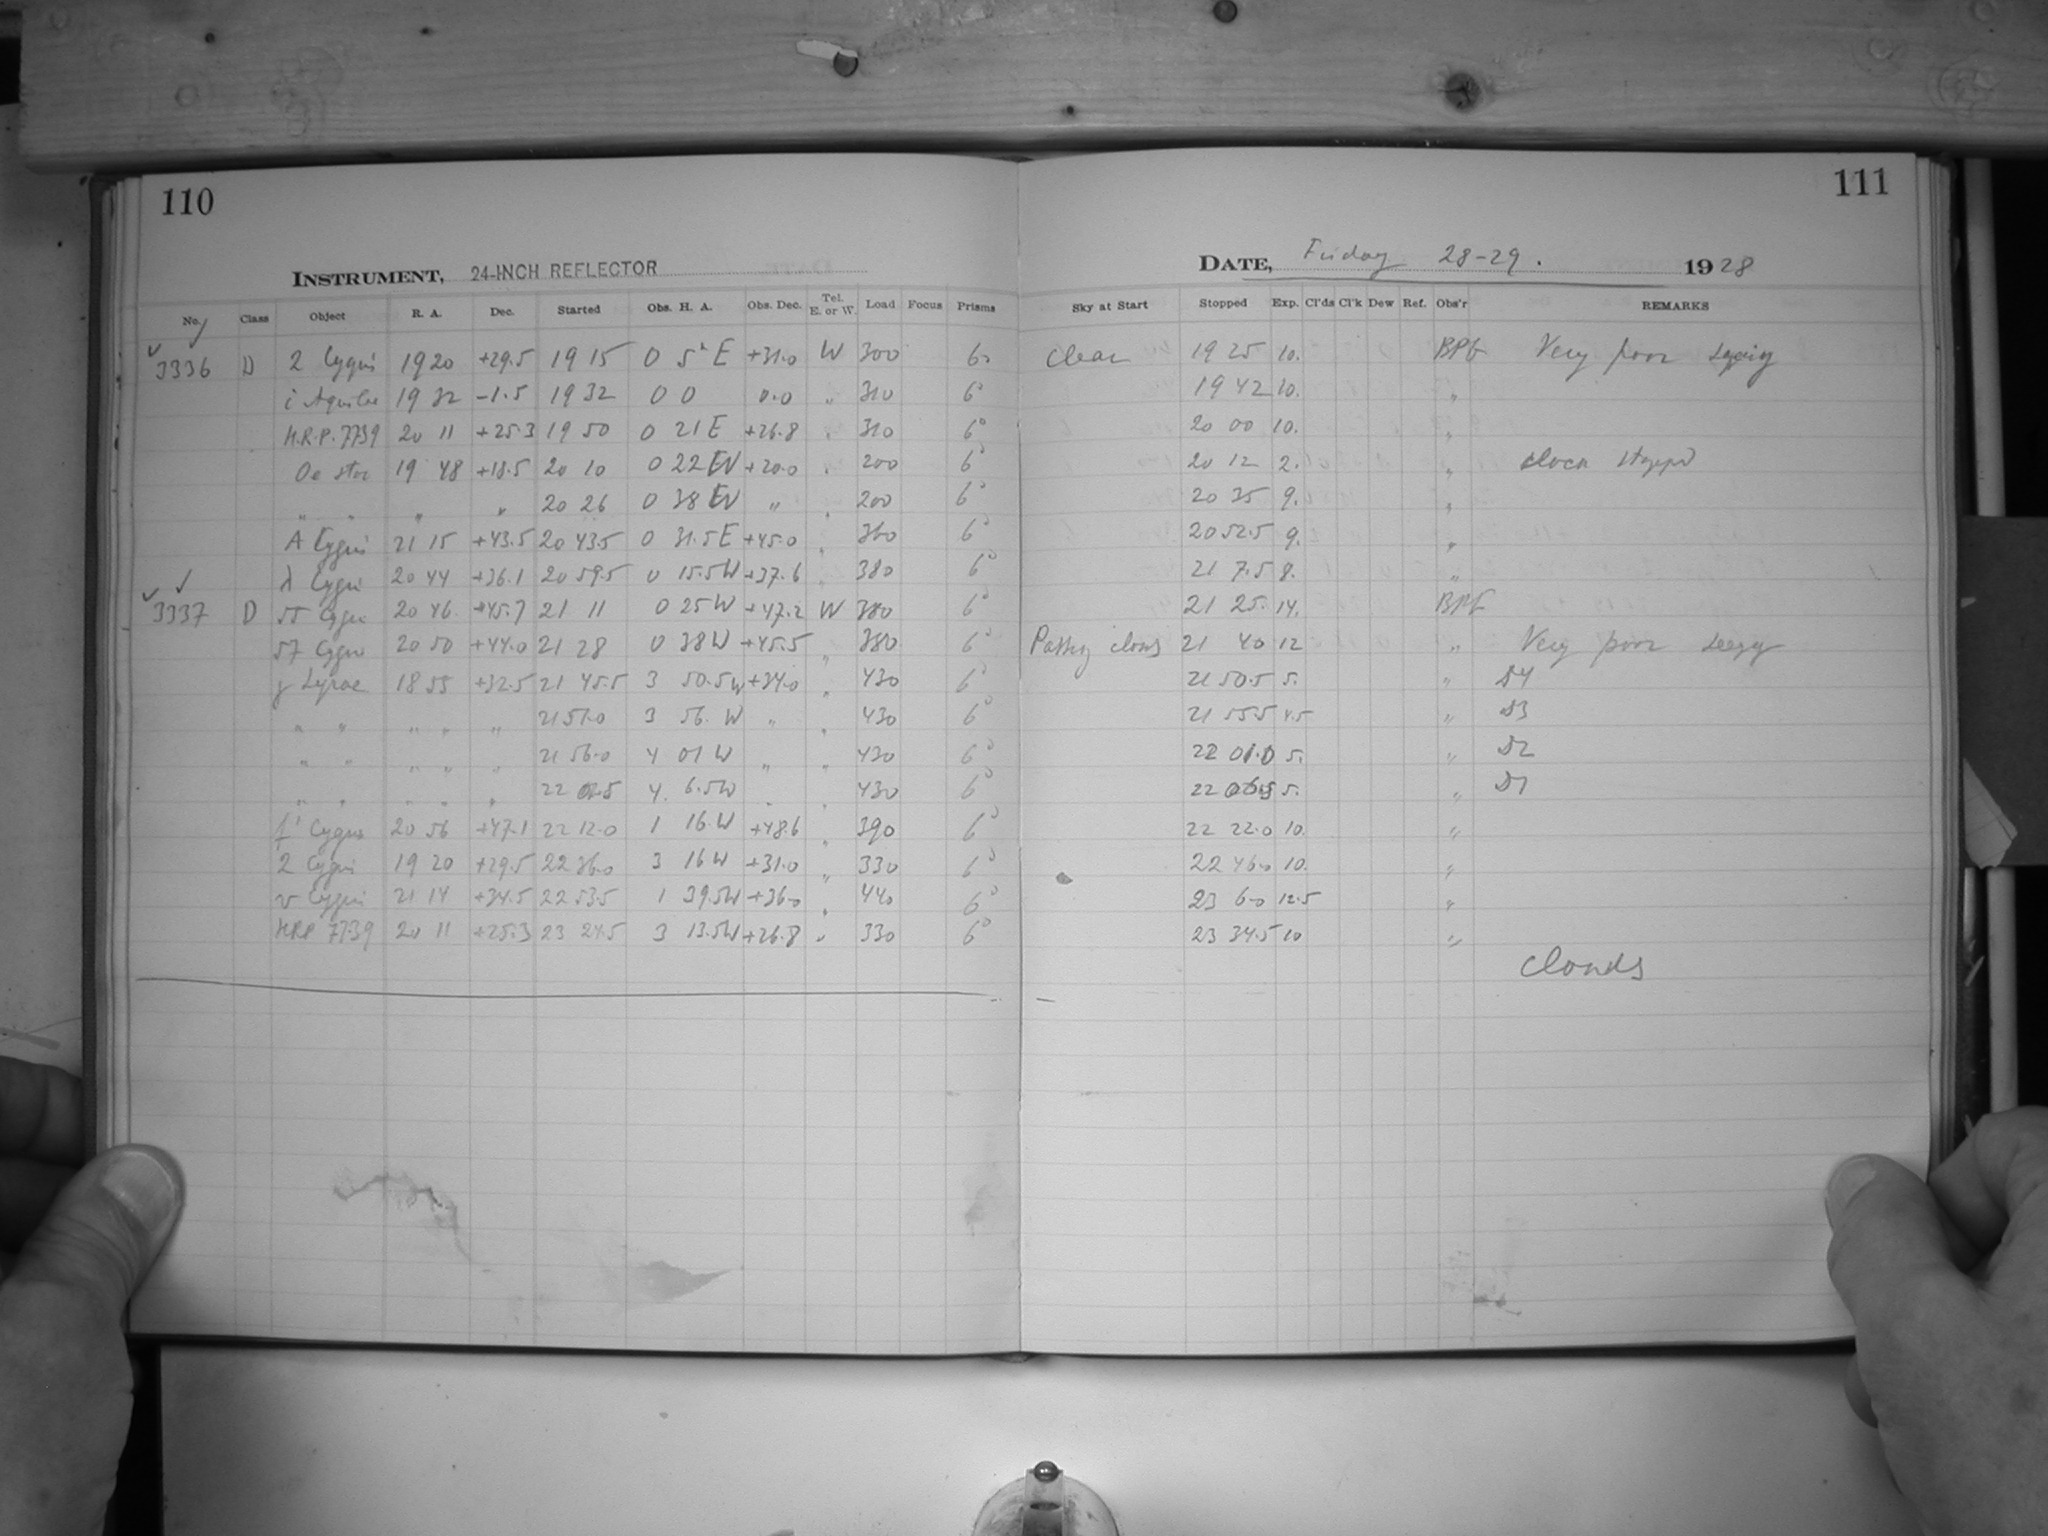 110
111
INSTRUMENT, 24-INCH REFLECTOR
DATE, Friday 28-29. 1928
No. Class Object R. A. Dec. Started Obs. H. A. Obs. Dec. Tel. E. or W. Load Focus Prisms Sky at Start Stopped Exp. Cl'ds Cl'k Dew Ref. Obs'r REMARKS
3336 D 2 Cygni 19 20 +29.5 19 15 0 5 E +31.0 W 300 6° Clear 19 25 10. Very poor seeing
i Aquilae 19 32 -1.5 19 32 0 0 0.0 " 310 6° 19 42 10. "
H.R.P. 7739 20 11 +25.3 19 50 0 21 E +26.8 " 310 6° 20 00 10. "
Oe star 19 48 +18.5 20 10 0 22 W +20.0 " 200 6° 20 12 2. " clock stopped
" " " " 20 26 0 38 W " " 200 6° 20 35 9. "
A Cygni 21 15 +43.5 20 43.5 0 31.5 E +45.0 " 360 6° 20 52.5 9. "
λ Cygni 20 44 +36.1 20 59.5 0 15.5 W +37.6 " 380 6° 21 7.5 8. "
3337 D 55 Cygni 20 46. +45.7 21 11 0 25 W +47.2 W 380 6° 21 25. 14.
57 Cygni 20 50 +44.0 21 28 0 38 W +45.5 " 380 6° Passing clouds 21 40 12 " Very poor seeing
γ Lyrae 18 55 +32.5 21 45.5 3 50.5 W +34.0 " 430 6° 21 50.5 5. " D4
" " " " " 21 51.0 3 56. W " " 430 6° 21 55.5 4.5 " D3
" " " " " 21 56.0 4 01 W " " 430 6° 22 01.0 5. " D2
" " " " " 22 01.5 4. 6.5 W " " 430 6° 22 06.5 5. " D1
f' Cygni 20 56 +47.1 22 12.0 1 16. W +48.6 " 390 6° 22 22.0 10. "
2 Cygni 19 20 +29.5 22 36.0 3 16 W +31.0 " 330 6° 22 46.0 10. "
v Cygni 21 14 +34.5 22 53.5 1 39.5 W +36.0 " 440 6° 23 6.0 12.5 "
HRP 7739 20 11 +25.3 23 24.5 3 13.5 W +26.8 " 330 6° 23 34.5 10 "
Clouds